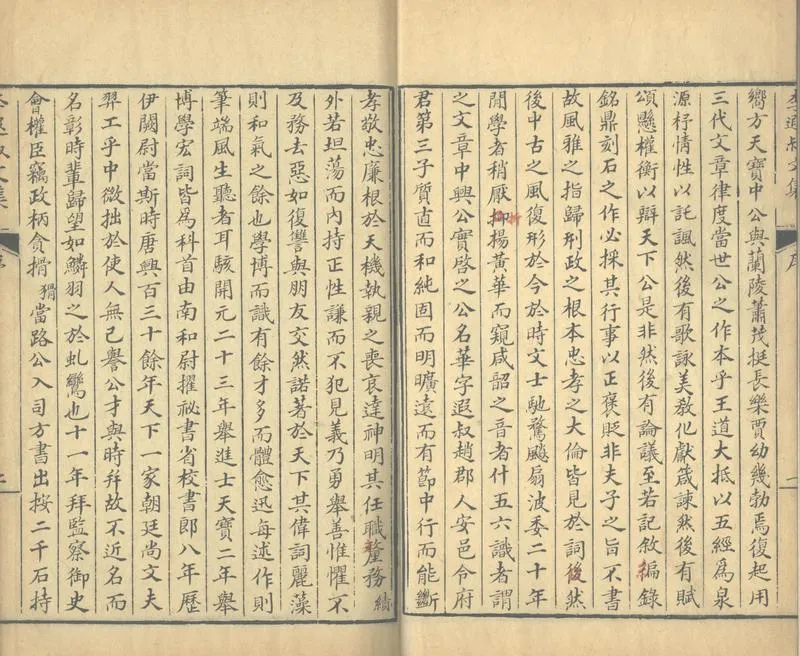 李遐叔文集 序 一
嚮方天寶中公與蘭陵蕭茂挺長樂賈幼幾勃焉復起用
三代文章律度當世公之作本乎王道大抵以五經爲泉
源杼情性以託諷然後有歌詠美敎化獻箴諫然後有賦
頌懸權衡以辯天下公是非然後有論議至若記敘編錄
銘鼎刻石之作必採其行事以正褒貶非夫子之旨不書
故風雅之指歸刑政之根本忠孝之大倫皆見於詞後然
後中古之風復形於今於時文士馳騖飈扇波委二十年
閒學者稍厭抑揚黃華而窺咸韶之音者什五六識者謂
之文章中興公實啓之公名華字遐叔趙郡人安邑令府
君第三子質直而和純固而明曠遠而有節中行而能斷
孝敬忠廉根於天機執親之喪哀達神明其任職釐務績
外若坦蕩而內持正性謙而不犯見義乃勇舉善惟懼不
及務去惡如復讐與朋友交然諾著於天下其偉詞麗藻
則和氣之餘也學博而識有餘才多而體愈迅每述作則
筆端風生聽者耳駭開元二十三年舉進士天寶二年舉
博學宏詞皆爲科首由南和尉擢祕書省校書郎八年歷
伊闕尉當斯時唐興百三十餘年天下一家朝廷尚文夫
羿工乎中微拙於使人無己譽公才與時幷故不近名而
名彰時輩歸望如鱗羽之於虬鸞也十一年拜監察御史
會權臣竊政柄貪搰猾當路公入司方書出按二千石持
李遐叔文集 序 二